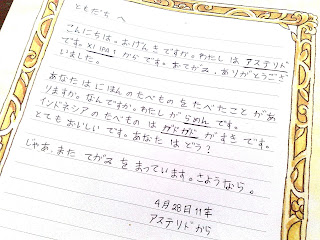 ともだち へ
こんにちは。おげんきですか。わたし は アステリド
です。XI IPA 1 からです。おてがみ、ありがとうござ
いました。
あなたは にほんの たべもの を たべたこと が あ
りますか。なんですか。わたし が らめん です。
インドネシアの たべもの は がどがど が すき です。
とても おいしい です。あなた は どう？
じゃあ、また てがみ を まっています。さようなら。
4月28日 11年
アステリド から